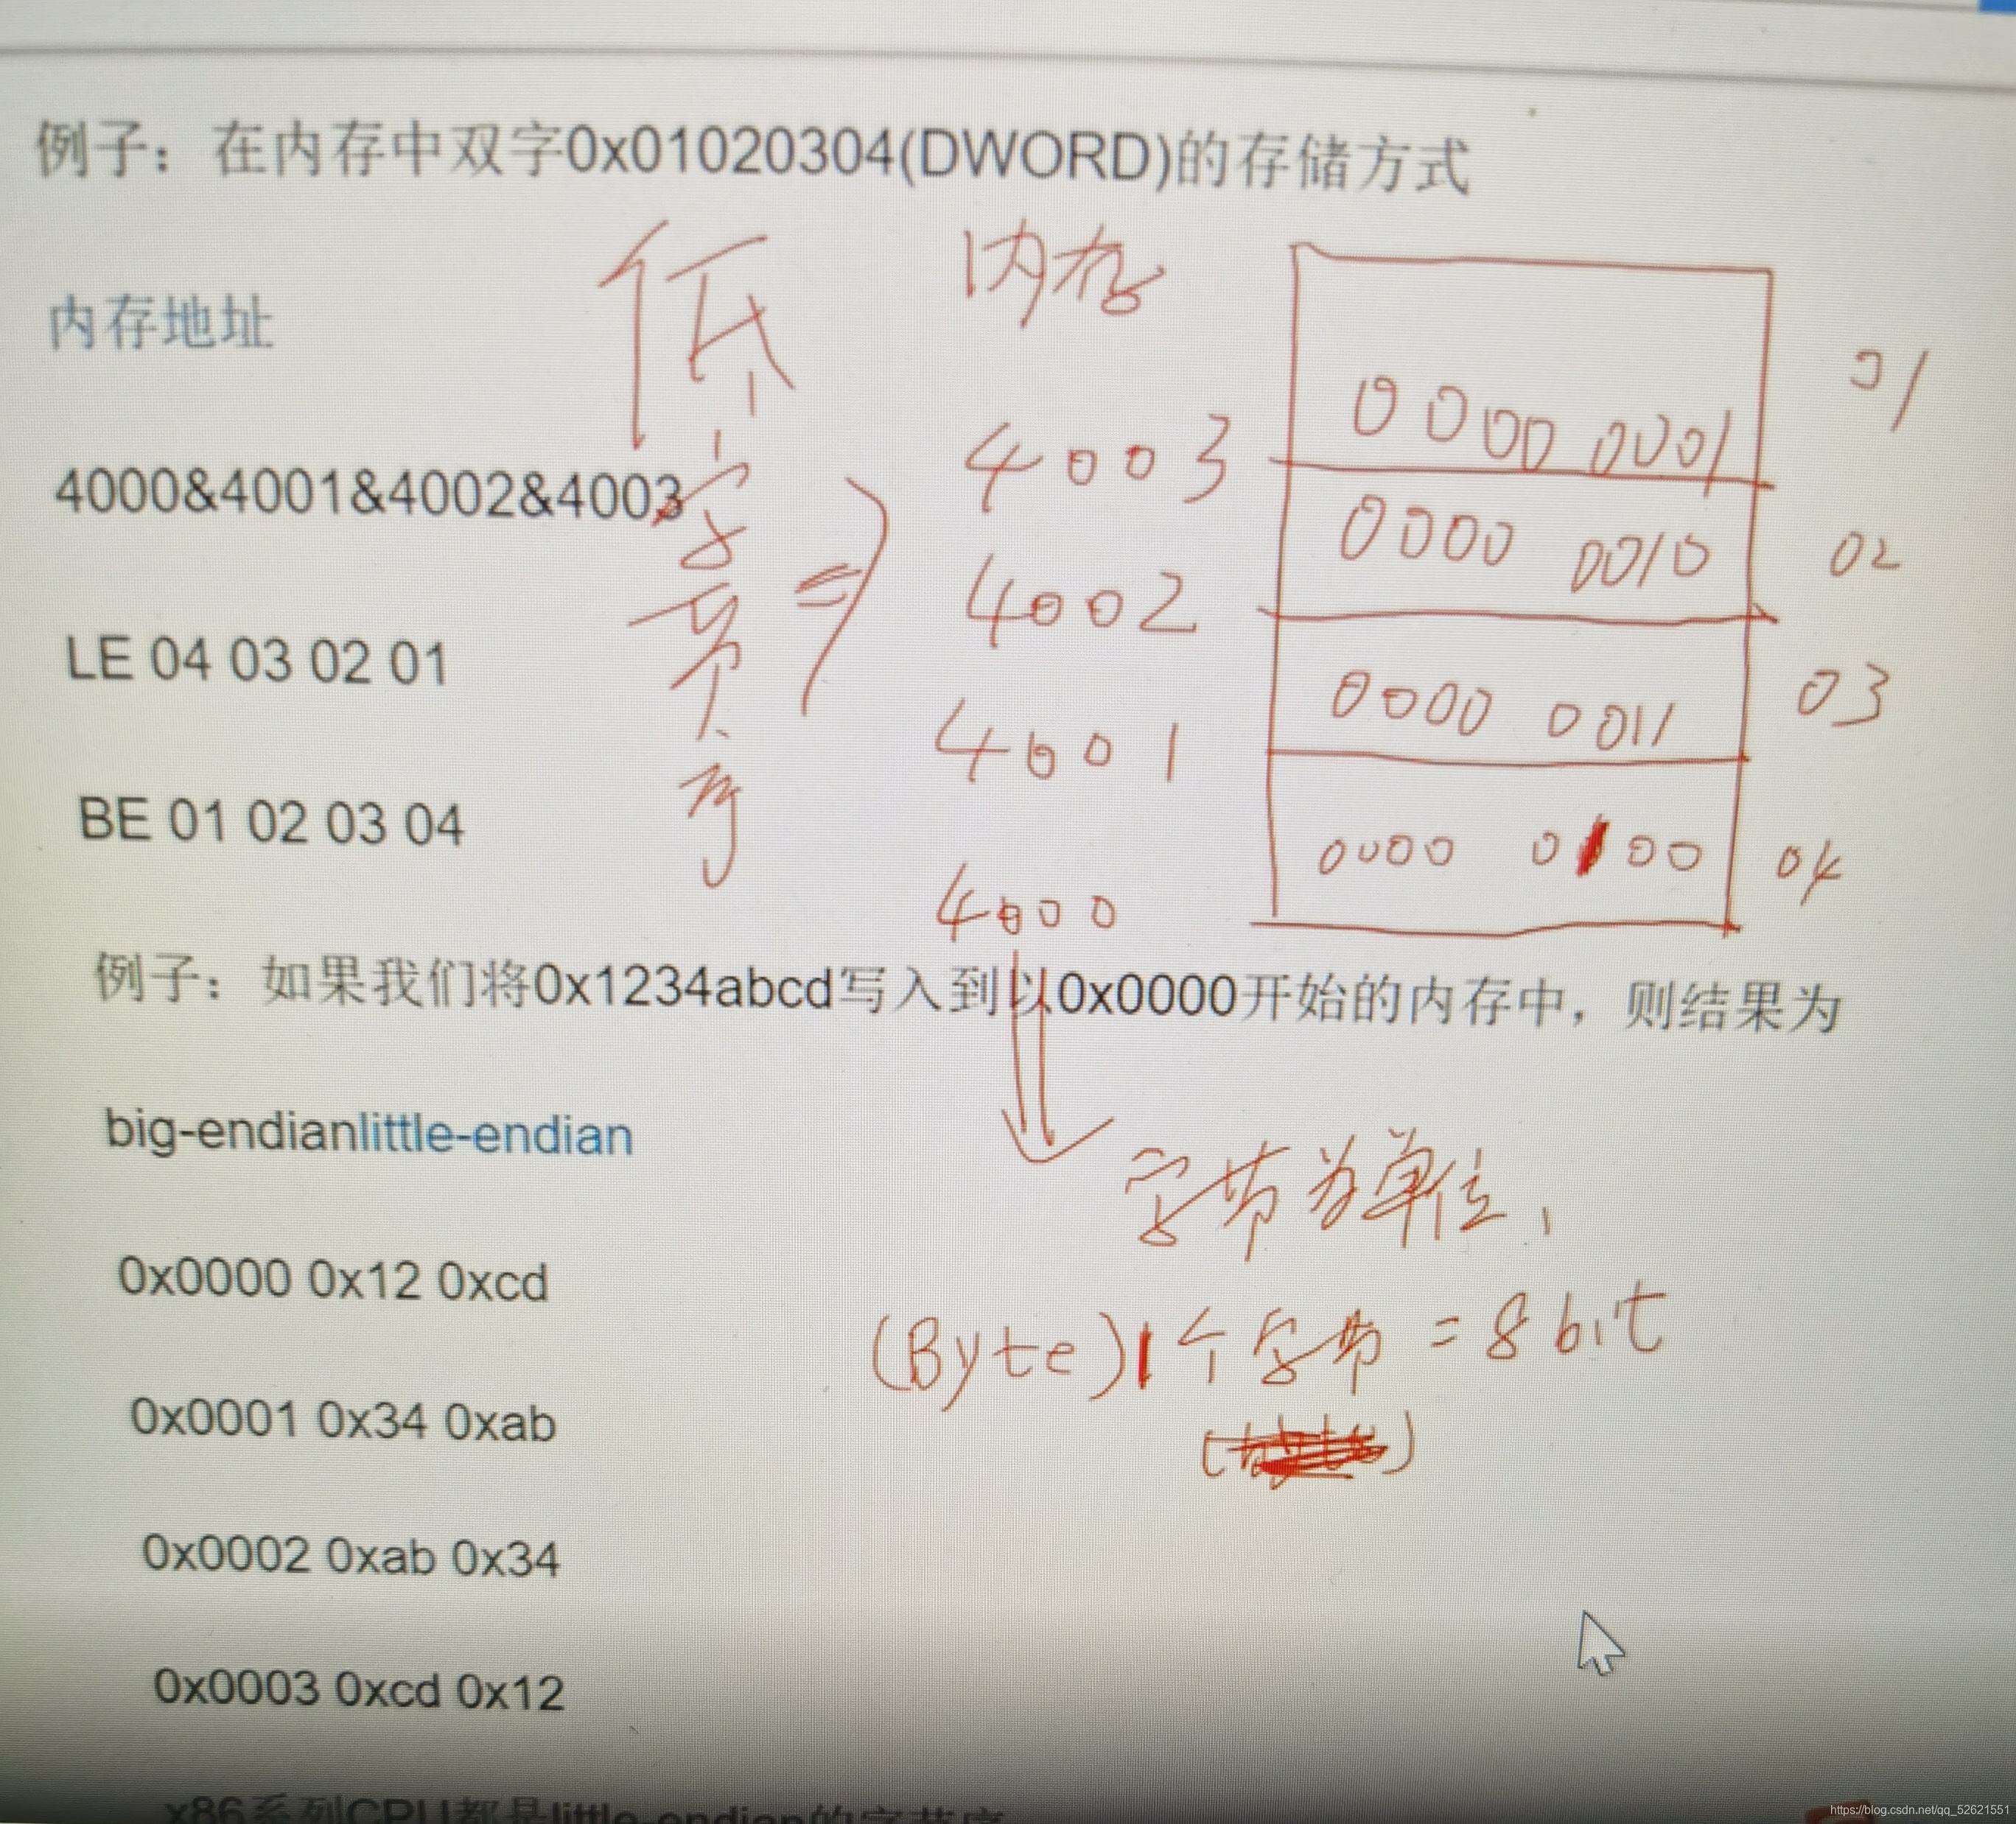 例子：在内存中双字0x01020304(DWORD)的存储方式
内存地址
4000&4001&4002&4003
LE 04 03 02 01
BE 01 02 03 04
低字节序
内存
4003 0000 0001 01
4002 0000 0010 02
4001 0000 0011 03
4000 0000 0100 04
例子：如果我们将0x1234abcd写入到以0x0000开始的内存中，则结果为
big-endianlittle-endian
字节为单位，
0x0000 0x12 0xcd
(Byte)1个字节=8bit
0x0001 0x34 0xab
0x0002 0xab 0x34
0x0003 0xcd 0x12
x86系列CPU都是little-endian的字节序
https://blog.csdn.net/qq_52621551